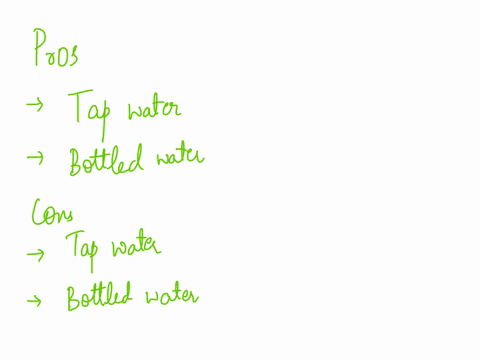 Pros
→ Tap water
→ Bottled water
Cons
→ Tap water
→ Bottled water